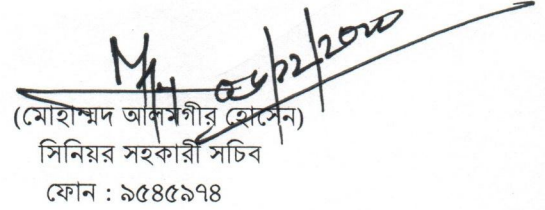 (মোহাম্মদ আলমগীর হোসেন)
সিনিয়র সহকারী সচিব
ফোন : ৯৫৪৫৯৭৪